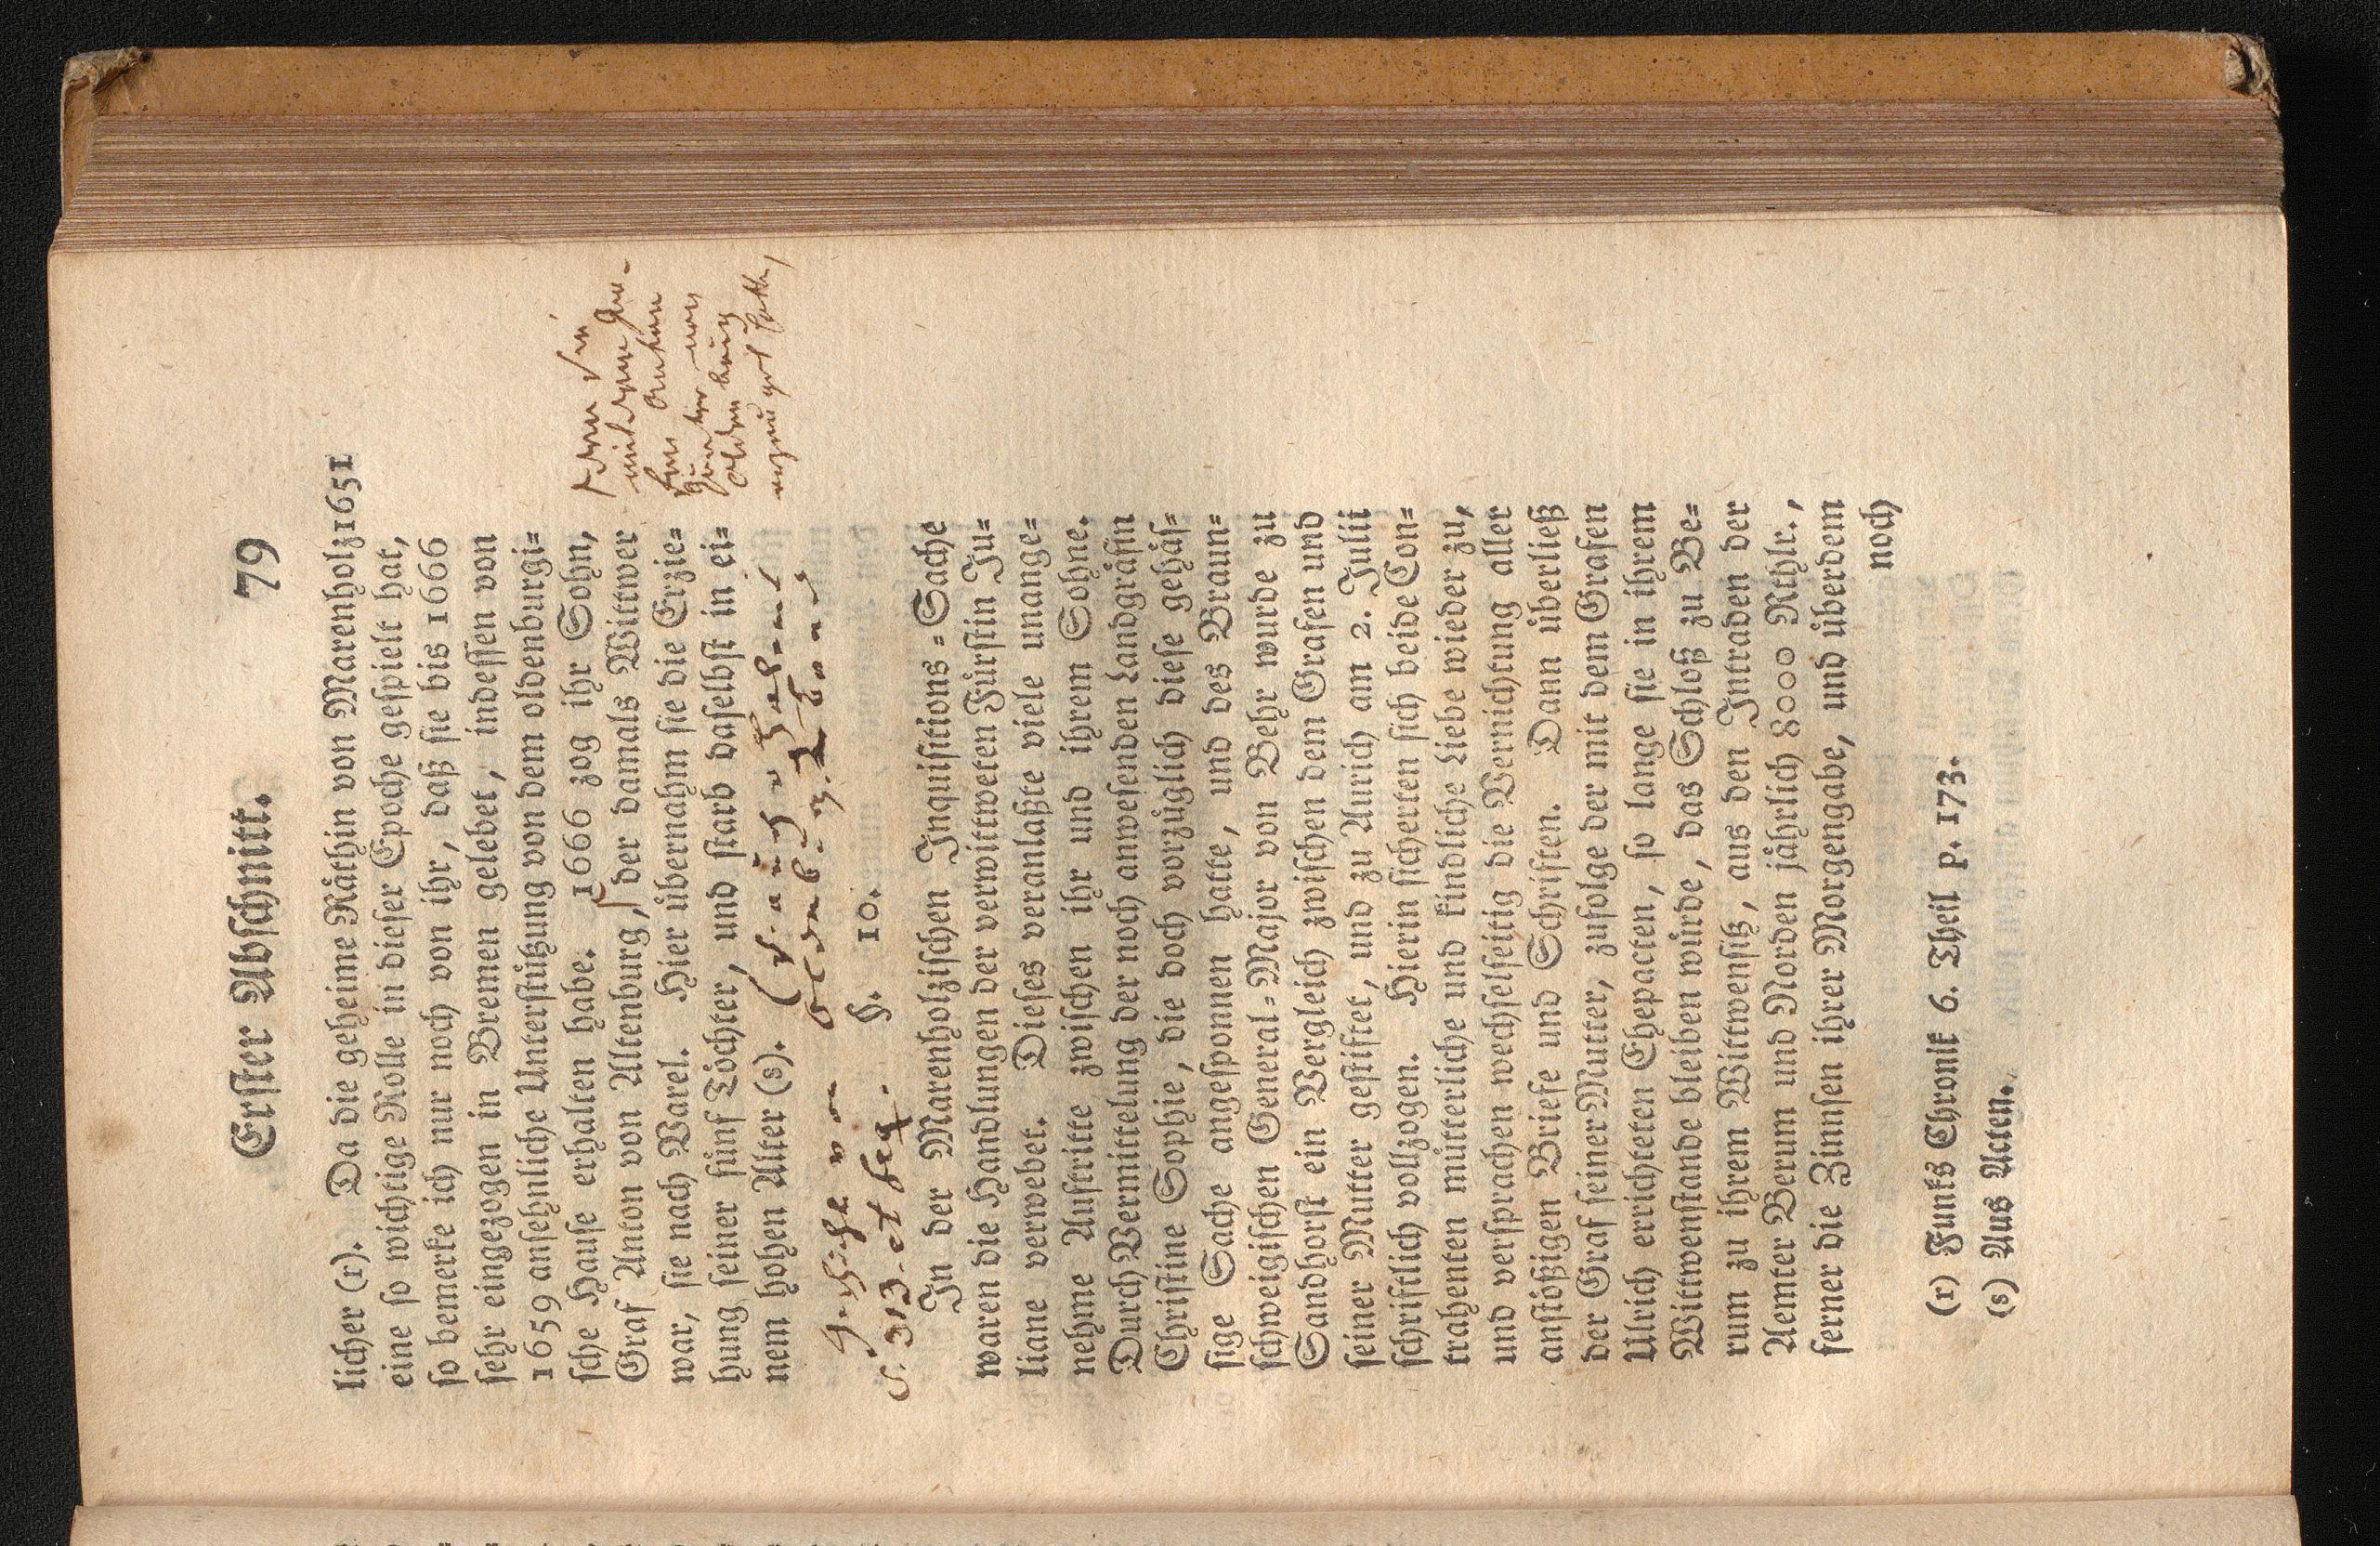 Erster Abschnitt. 79
licher (r). Da die geheime Räthin von Marenholz 1651
eine so wichtige Rolle in dieser Epoche gespielt hat,
so bemerke ich nur noch von ihr, daß sie bis 1666
sehr eingezogen in Bremen gelebet, indessen von
1659 ansehnliche Unterstützung von dem oldenburgi=
sche Hause erhalten habe. 1666 zog ihr Sohn,
Graf Anton von Altenburg, der damals Wittwer
war, sie nach Varel. Hier übernahm sie die Erzie=
hung seiner fünf Töchter, und starb daselbst in ei=
nem hohen Alter (s).
§. 10.
In der Marenholzischen Inquisitions=Sache
waren die Handlungen der verwittweten Fürstin Ju=
liane verwebet. Dieses veranlaßte viele unange=
nehme Auftritte zwischen ihr und ihrem Sohne.
Durch Vermittelung der noch anwesenden Landgräfin
Christine Sophie, die doch vorzüglich diese gehäs=
sige Sache angesponnen hatte, und des Braun=
schweigischen General=Major von Behr wurde zu
Sandhorst ein Vergleich zwischen dem Grafen und
seiner Mutter gestiftet, und zu Aurich am 2. Julii
schriftlich vollzogen. Hierin sicherten sich beide Con=
trahenten mütterliche und kindliche Liebe wieder zu,
und versprachen wechselseitig die Vernichtung aller
anstößigen Briefe und Schriften. Dann überließ
der Graf seiner Mutter, zufolge der mit dem Grafen
Ulrich errichteten Ehepacten, so lange sie in ihrem
Wittwenstande bleiben würde, das Schloß zu Be=
rum zu ihrem Wittwensitz, aus den Intraden der
Aemter Berum und Norden jährlich 8000 Rthlr.,
ferner die Zinnsen ihrer Morgengabe, und überdem
noch
(r) Funks Chronik 6. Theil p. 173.
(s) Aus Acten.
den sie
mit dem Gra-
fen Anton
Günther von
Oldenburg
erzeuget hatte,
S. 313. et seq.